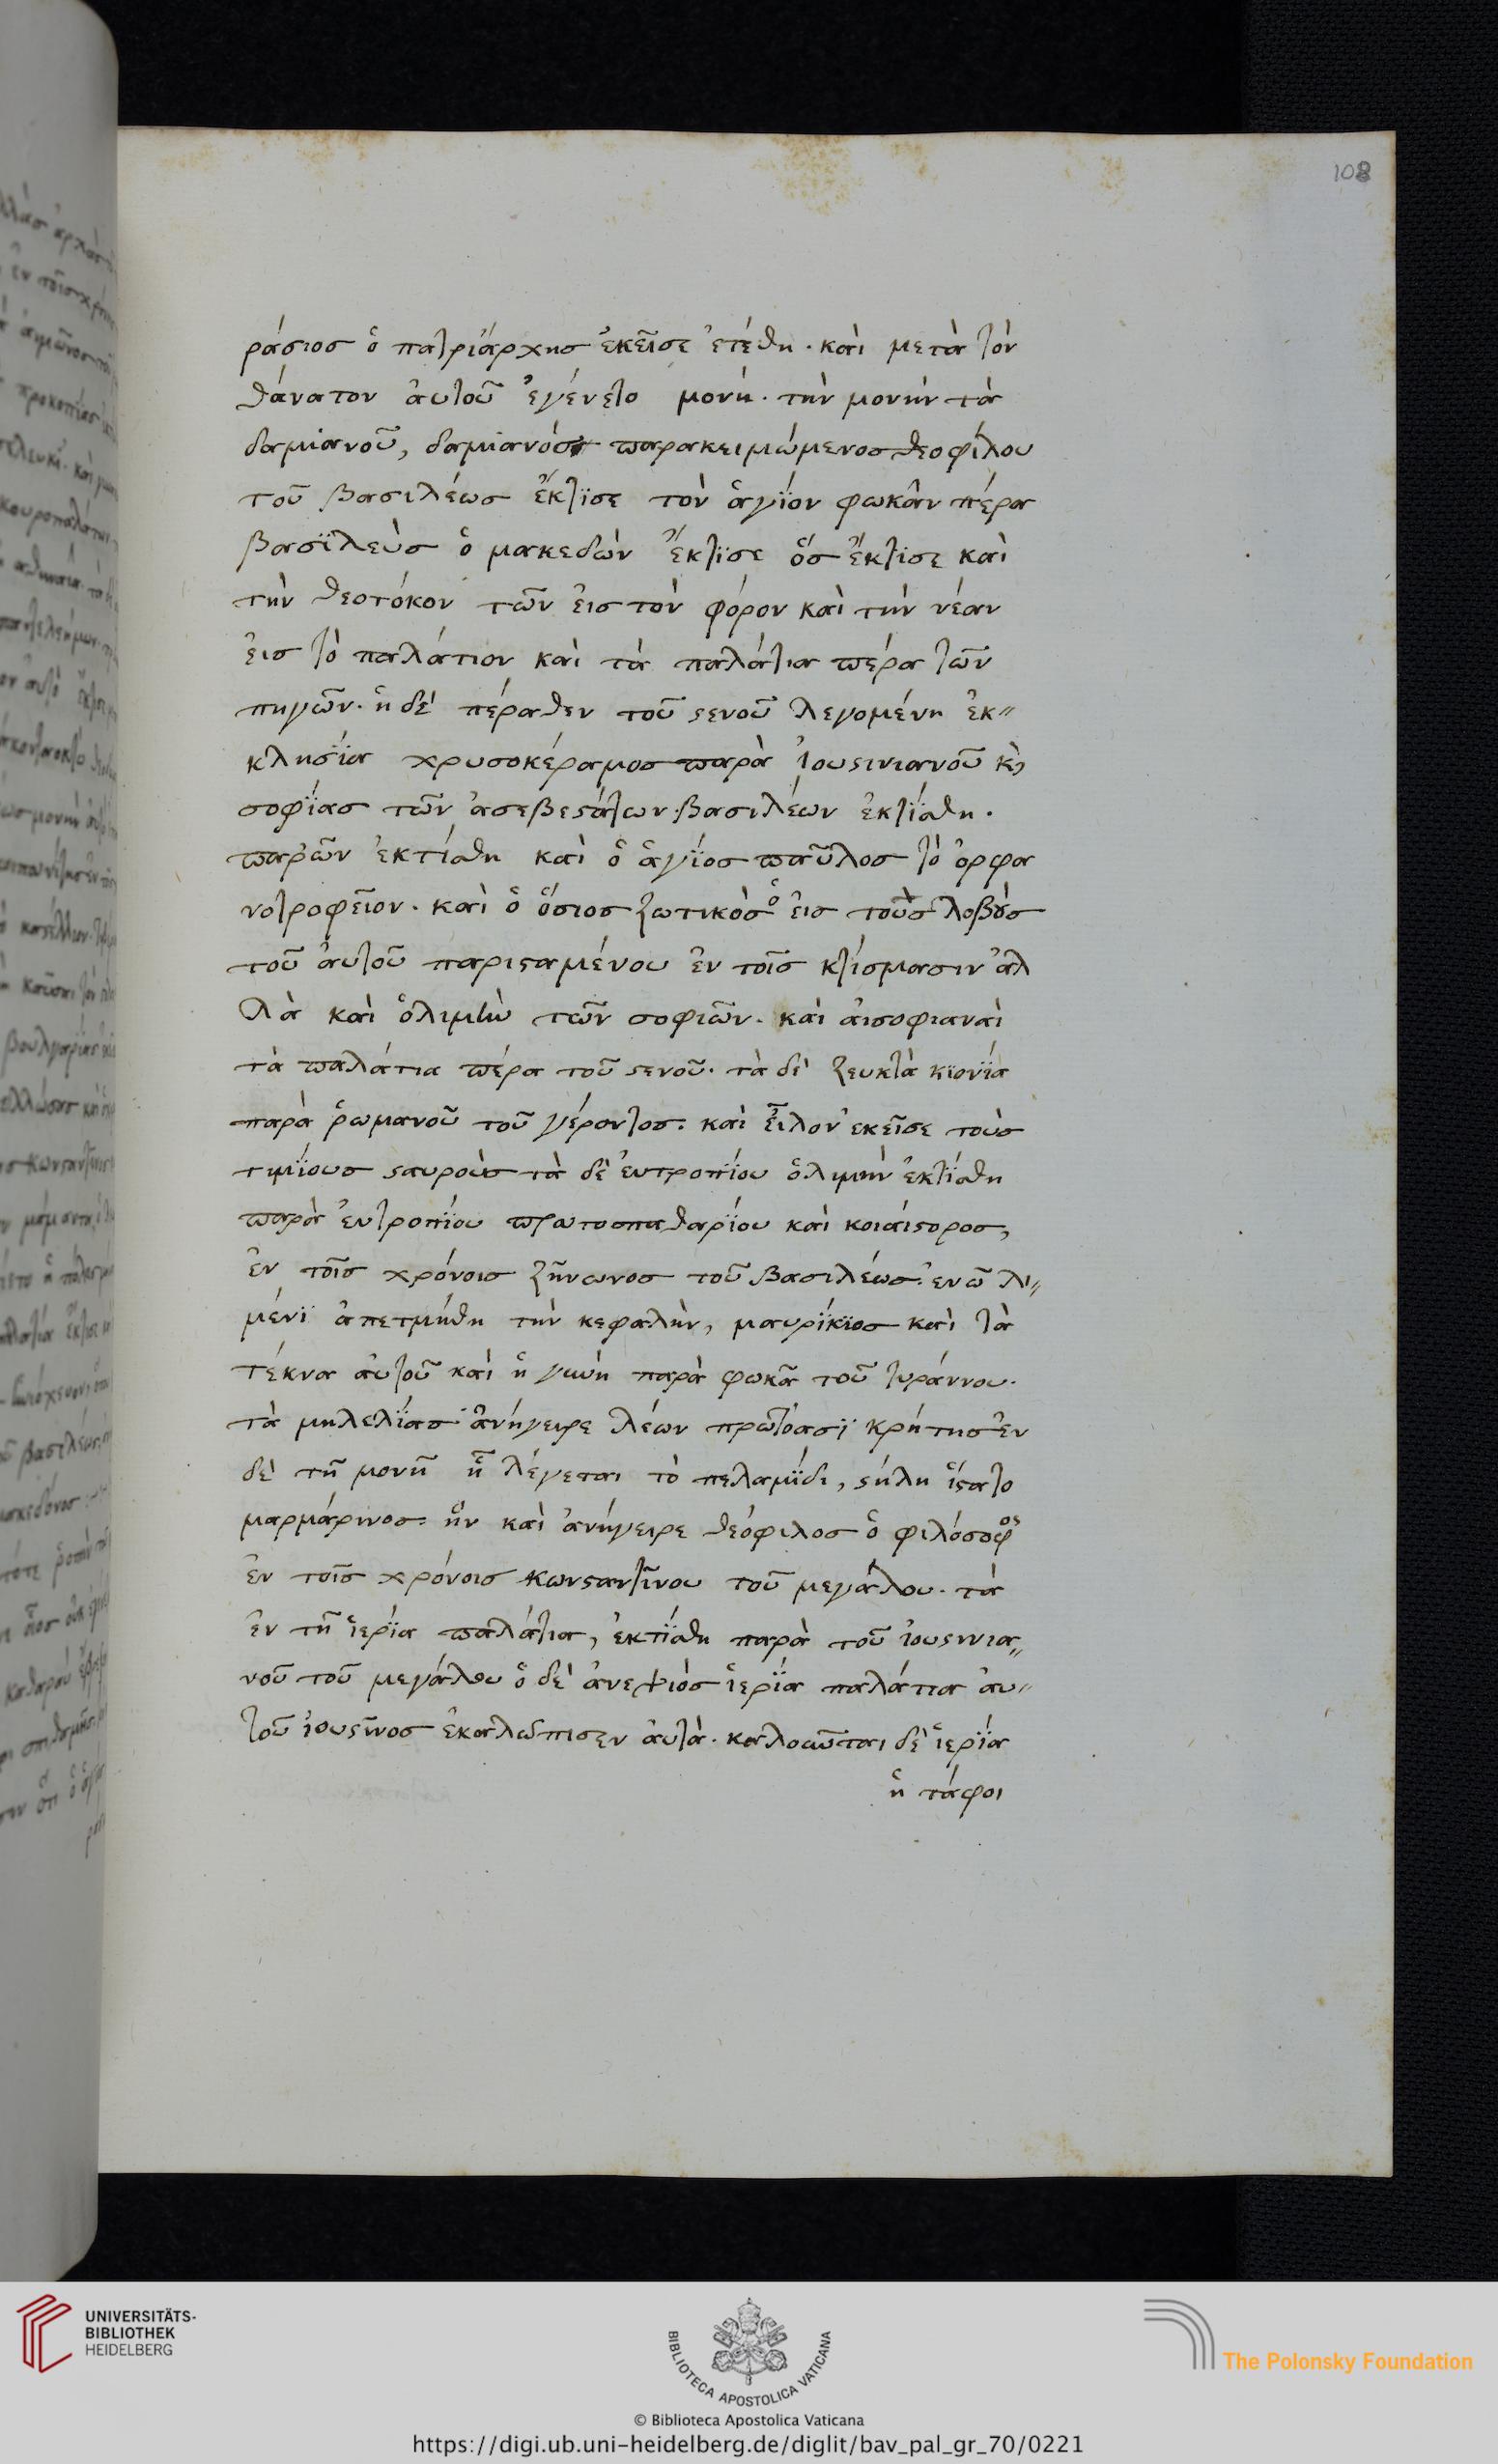 108
ράσιος ὁ πατριάρχης ἐκεῖσε ἐτέθη. καὶ μετὰ τὸν
θάνατον ἀυτοῦ ἐγένετο μονή. τὴν μονὴν τὰ
δαμιανοῦ, δαμιανὸς παρακειμώμενος θεοφίλου
τοῦ βασιλέως ἔκτϊσε τὸν ἅγϊον φωκᾶν πέρα
βασϊλεὺς ὁ μακεδὼν ἔκτϊσε ὅς ἔκτϊσε καὶ
τὴν θεοτόκον τῶν ἐις τὸν φόρον καὶ τὴν νέαν
ἐις τὸ παλάτιον καὶ τὰ παλάτια πέρα τῶν
πηγῶν. ἡ δὲ πέραθεν τοῦ στενοῦ λεγομένη ἐκ
κλησΐα χρυσοκέραμος παρὰ ἰουστινιανοῦ κὶ
σοφΐας τῶν ἀσεβεστάτων βασιλέων ἐκτΐσθη.
παρῶν ἐκτίσθη καὶ ὁ ἅγϊος παῦλος τὸ ὀρφα
νοτροφεῖον. καὶ ὁ ὅσιος ζωτικὸς ὁ ἐις τοὺς λοβοὺς
τοῦ ἀυτοῦ παρισταμένου ἐν τοῖς κτίσμασιν ἀλ
λὰ καὶ ὁλιμὴν τῶν σοφιῶν. καὶ ἁισοφιαναὶ
τὰ παλάτια πέρα τοῦ στενοῦ. τὰ δὲ ζευκτὰ κϊονΐα
παρὰ ῥωμανοῦ τοῦ γέροντος. καὶ εἷλον ἐκεῖσε τοὺς
τιμΐους σταυροὺς τὰ δὲ ἐυτροπΐου ὁλιμὴν ἐκτΐσθη
παρὰ ἐυτροπΐου πρωτοσπαθαρΐου καὶ κοιάιστορος,
ἐν τοῖς χρόνοις ζῆνωνος τοῦ βασιλέως. ἐνῶ λι
μένϊ ἀπετμήθη τὴν κεφαλὴν, μαυρΐκϊος καὶ τὰ
τέκνα ἀυτοῦ καὶ ἡ γυνὴ παρὰ φωκᾶ τοῦ τυράννου.
τὰ μηλελΐας ἀνήγειρε λέων πρωτόασϊ κρήτης ἐν
δὲ τῆ μονῆ ἧ λέγεται τὸ πελαμΐδι, στήλη ἵστατο
μαρμάρινος. ἣν καὶ ἀνήγειρε θεόφιλος ὁ φιλόσοφος
ἐν τοῖς χρόνοις κωνσταντῖνου τοῦ μεγάλου. τὰ
ἐν τῆ ἱερΐα παλάτια, ἐκτΐσθη παρὰ τοῦ ἰουστινια
νοῦ τοῦ μεγάλου ὁ δὲ ἀνεψιός ἱερΐα παλάτια ἀυ
τοῦ ἰουστῖνος ἐκαλώπισεν ἀυτά. καλοῶνται δὲ ἱερΐα
ἡ τάφοι
UNIVERSITÄTS-
BIBLIOTHEK
HEIDELBERG
BIBLIOTECA APOSTOLICA VATICANA
The Polonsky Foundation
© Biblioteca Apostolica Vaticana
https://digi.ub.uni-heidelberg.de/diglit/bav_pal_gr_70/0221